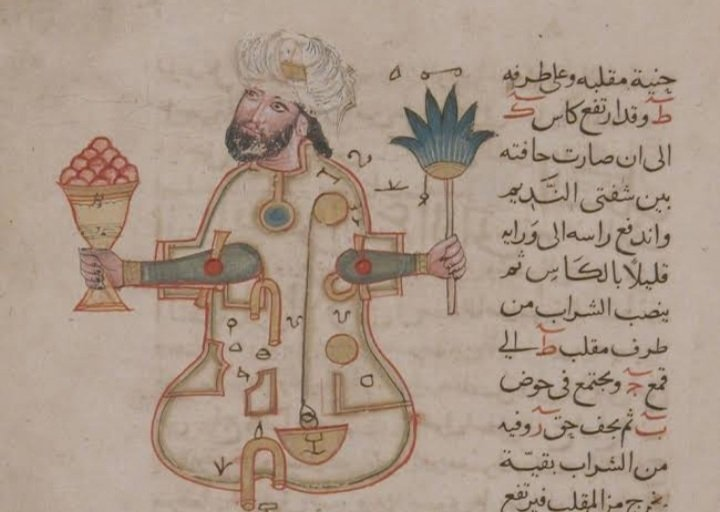 جنبة مقلبه وعلى طرفه
ط وقد ارتفع كاس ك
الى ان صارت حافته
بين شفتى النديم
واندفع راسه الى ورايه
قليلًا بالكاس ثم
ينصب الشراب من
طرف مقلب ط الى
قمع ج ويجتمع فى حوض
ب ثم يجف حق ز وفيه
من الشراب بقيّة
يخرج من المقلب فيرتفع